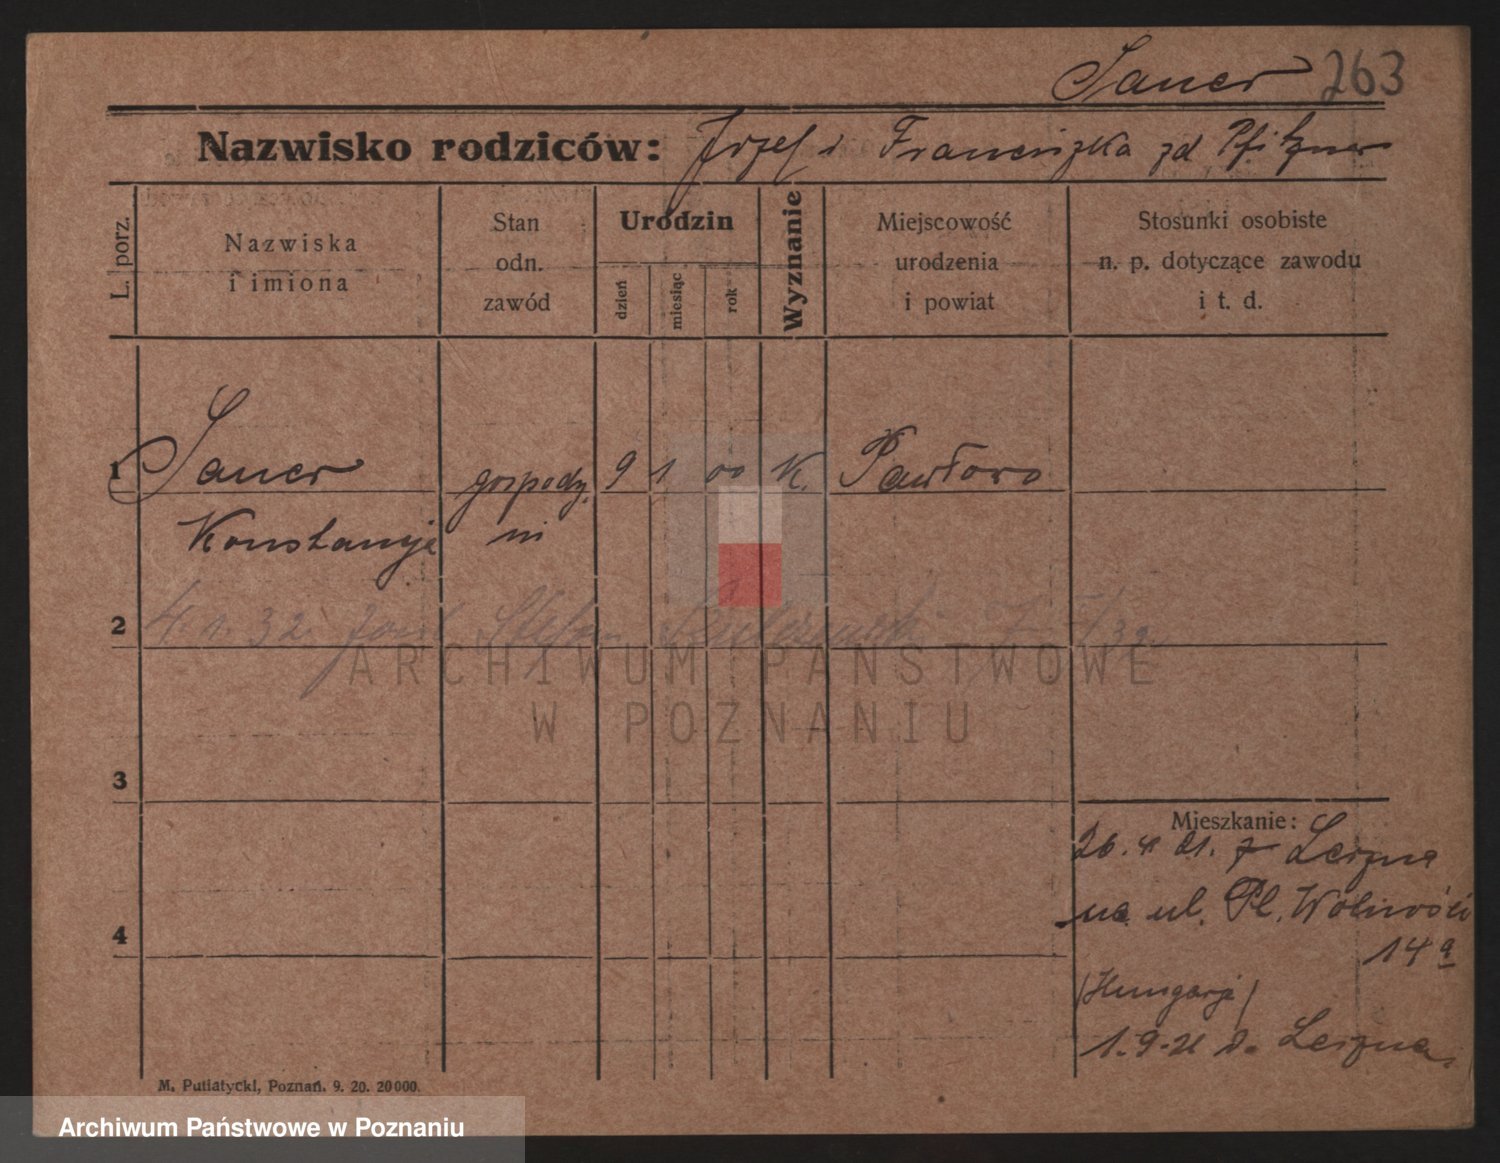 Sauer 263
Nazwisko rodziców: Józef i Franciszka zd Pfitzner
L. porz.
Nazwiska
i imiona
Stan
odn.
zawód
Urodzin
dzień
miesiąc
rok
Wyznanie
Miejscowość
urodzenia
i powiat
Stosunki osobiste
n. p. dotyczące zawodu
i t. d.
1 Sauer gospody. 9 1 00 K. Pawłowo
Konstancja ni
2 4.1.32. Stefan
3
4
Mieszkanie:
26. 4 21. z Leszna
na ul. Pl. Wolności
14a
(Hungarja)
1.9.21 d. Leszna
M. Putiatycki, Poznań. 9. 20. 20000.
ARCHIWUM PAŃSTWOWE
W POZNANIU
Archiwum Państwowe w Poznaniu